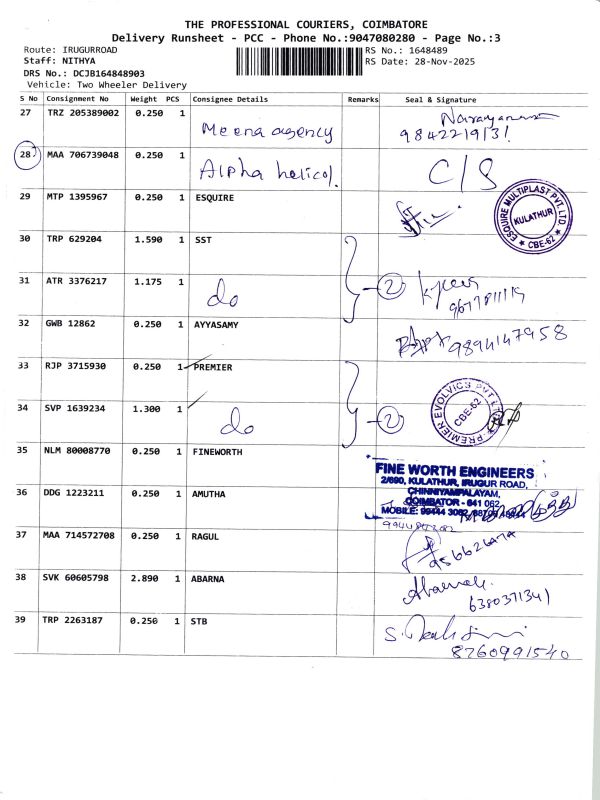 THE PROFESSIONAL COURIERS, COIMBATORE
Delivery Runsheet - PCC - Phone No.:9047080280 - Page No.:3
Route: IRUGURROAD RS No.: 1648489
Staff: NITHYA RS Date: 28-Nov-2025
DRS No.: DCJB164848903
Vehicle: Two Wheeler Delivery
S No Consignment No Weight PCS Consignee Details Remarks Seal & Signature
27 TRZ 205389002 0.250 1 Meena agency
28 MAA 706739048 0.250 1 Alpha helical. C/S
29 MTP 1395967 0.250 1 ESQUIRE
ESQUIRE MULTIPLAST PVT. LTD
KULATHUR
* CBE-62 *
30 TRP 629204 1.590 1 SST
31 ATR 3376217 1.175 1 do 2
32 GWB 12862 0.250 1 AYYASAMY 9894147958
33 RJP 3715930 0.250 1 PREMIER
34 SVP 1639234 1.300 1 do 2
PREMIER EVOLVICS PVT LTD
CBE-62
35 NLM 80008770 0.250 1 FINEWORTH
FINE WORTH ENGINEERS
2/690, KULATHUR, IRUGUR ROAD,
CHINNIYAMPALAYAM,
COIMBATOR - 641 062
MOBILE: 99444
36 DDG 1223211 0.250 1 AMUTHA
37 MAA 714572708 0.250 1 RAGUL
38 SVK 60605798 2.890 1 ABARNA
6380371341
39 TRP 2263187 0.250 1 STB
8760991540